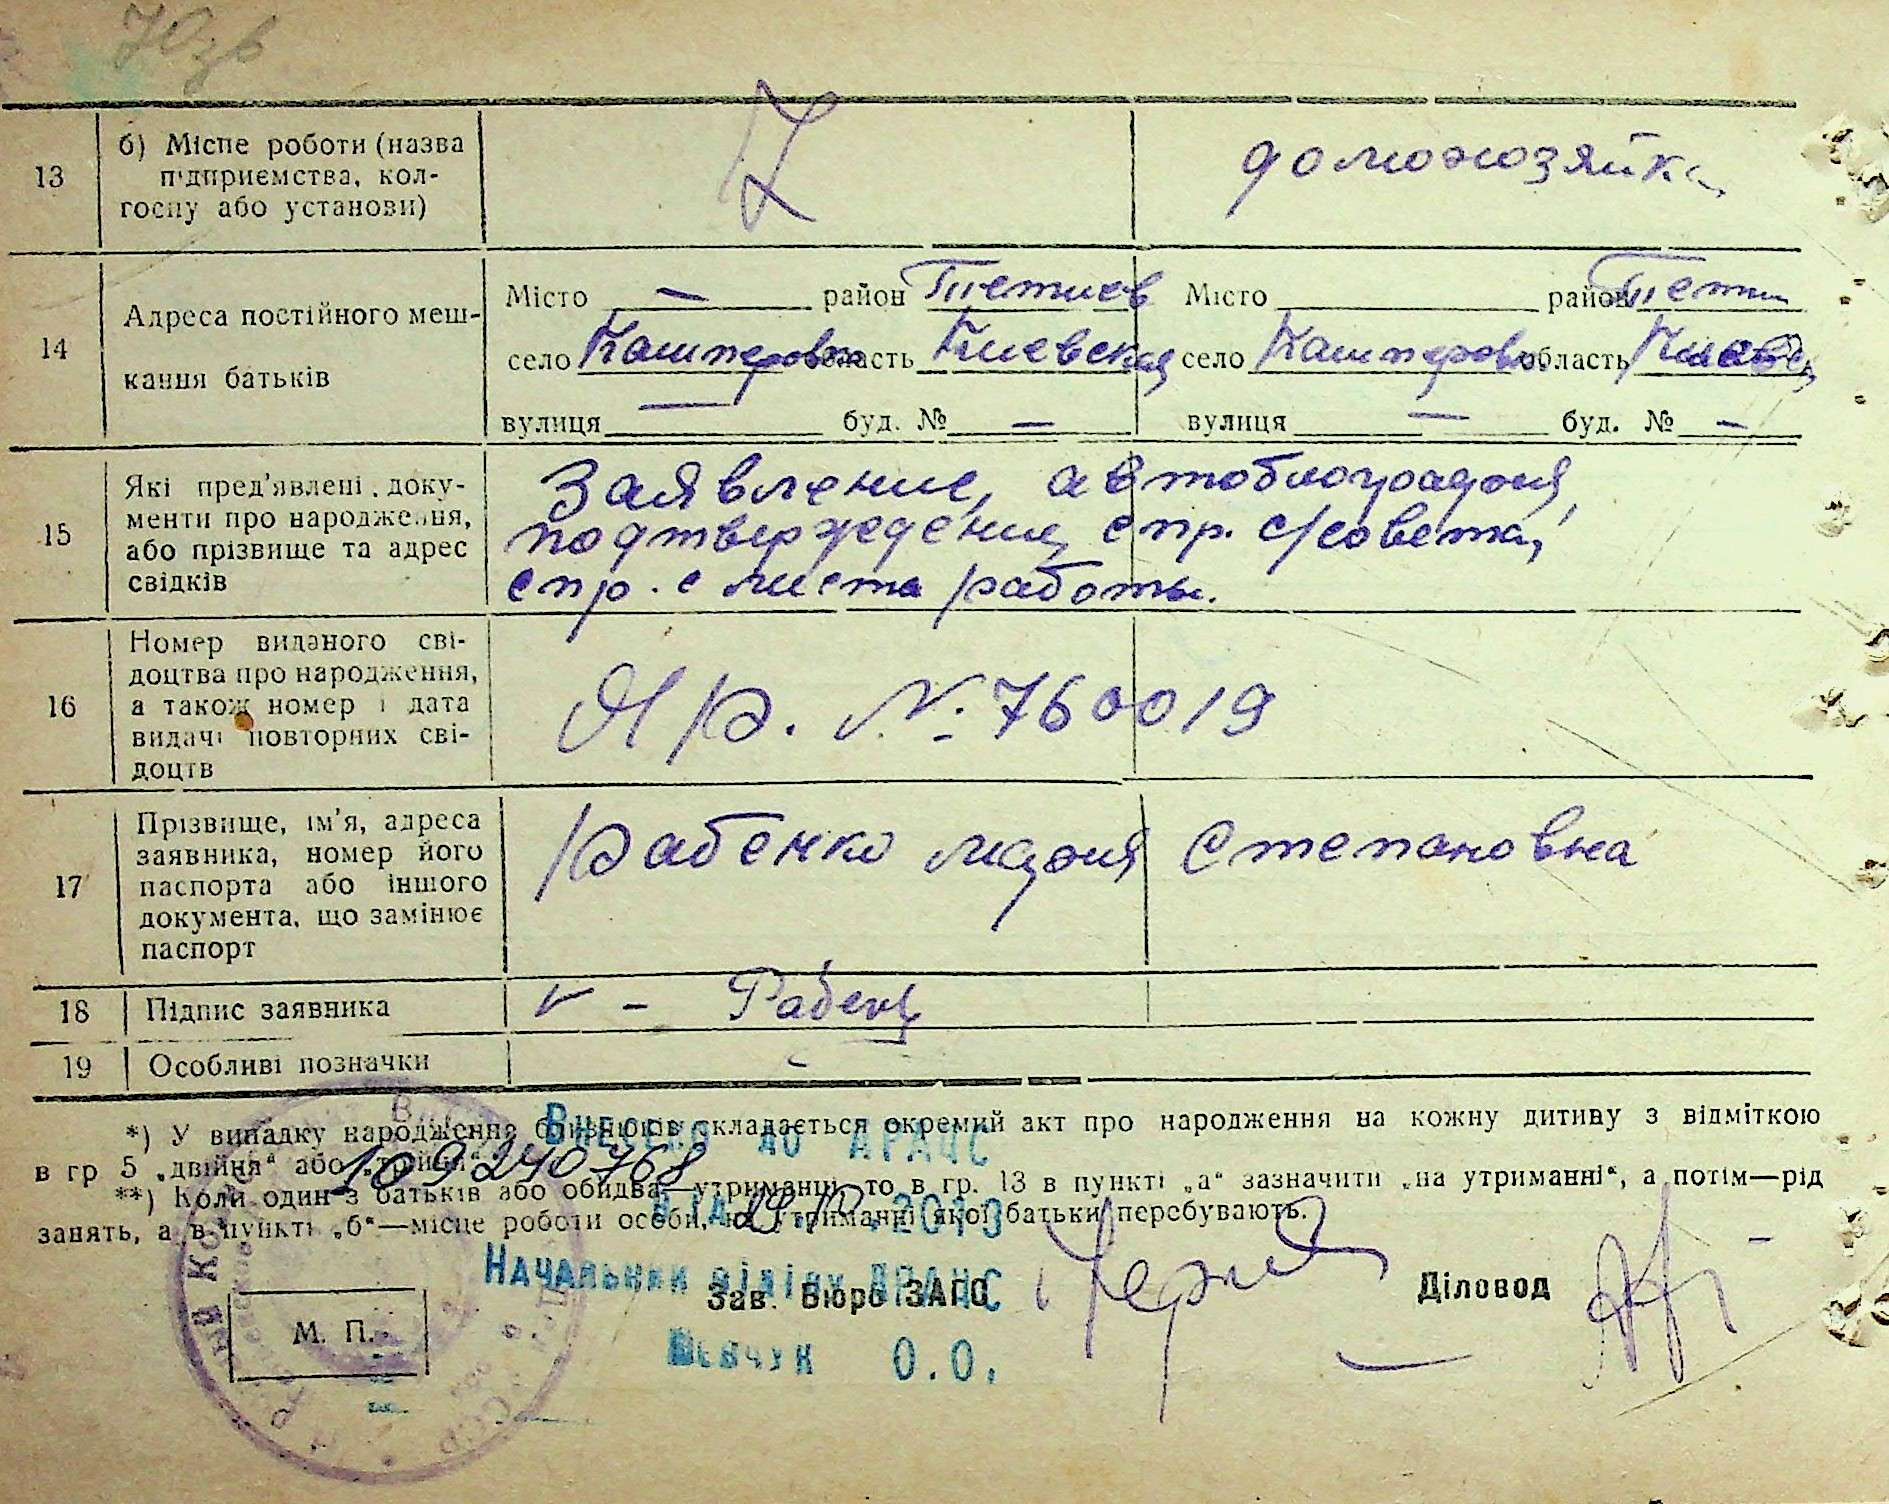 13
б) Місце роботи (назва підприємства, кол-
госпу або установи)
домохозяйка
14
Адреса постійного меш-
кання батьків
Місто — район Тетиев
село Кашперовка область Киевская
вулиця — буд. № —
Місто район Тетии
село Кашперовка область Киевск
вулиця — буд. № —
15
Які пред'явлені доку-
менти про народження,
або прізвище та адрес
свідків
Заявление, автобиография,
подтверждение, спр. с/совета,
спр. с места работы.
16
Номер виданого сві-
доцтва про народження,
а також номер і дата
видачі повторних сві-
доцтв
ЯР. № 760019
17
Прізвище, ім'я, адреса
заявника, номер його
паспорта або іншого
документа, що замінює
паспорт
Рабенко Мария Степановна
18
Підпис заявника
v - Рабенк
19
Особливі позначки
*) У випадку народження близнюків складається окремий акт про народження на кожну дитину з відміткою
в гр 5 „двійня“ або „трійня“.
**) Коли один з батьків або обидва—утриманці, то в гр. 13 в пункті „а“ зазначити „на утриманні“, а потім—рід
занять, а в пункті „б“—місце роботи особи, на утриманні якої батьки перебувають.
Внесено до ДРАЦС
109240768
від 2013
Начальник відділу ДРАЦС
Шевчук О.О.
Зав. Бюро ЗАГС
Діловод
М. П.